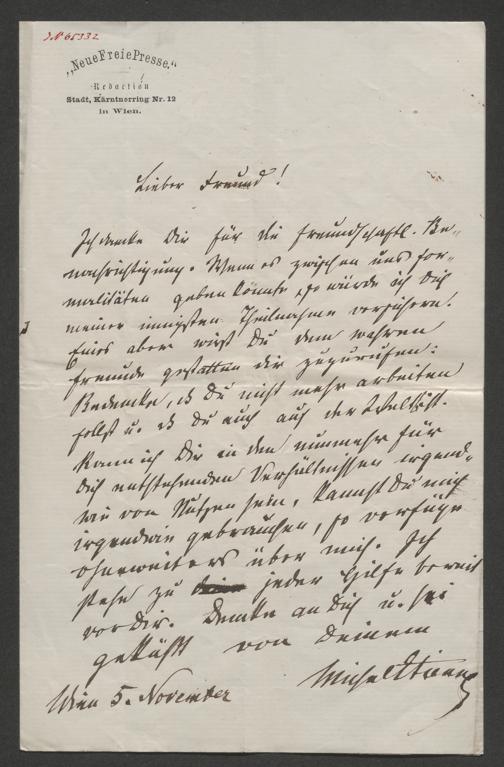 J.N 65332
„Neue Freie Presse."
Redaction
Stadt, Kärntnerring Nr. 12
in Wien.
Lieber Freund!
Ich danke Dir für die freundschaftl. Be-
nachrichtigung. Wenn es zwischen uns For-
malitäten geben könnte, so würde ich Dich
meiner innigsten Theilnahme versichern.
Eines aber wirst Du dem wahren
Freunde gestatten dir zuzurufen:
Bedenke, daß Du nicht mehr arbeiten
sollst u. daß Du auch auf der Welt bist.
Kann ich Dir in den nunmehr für
Dich entstehenden Verhältnissen irgend-
wie von Nutzen sein, kannst Du mich
irgendwie gebrauchen, so verfüge
ohneweiters über mich. Ich
stehe zu jeder Hilfe bereit
vor Dir. Denke an Dich u. sei
geküßt von Deinem
Michael Etienne
Wien 5. November